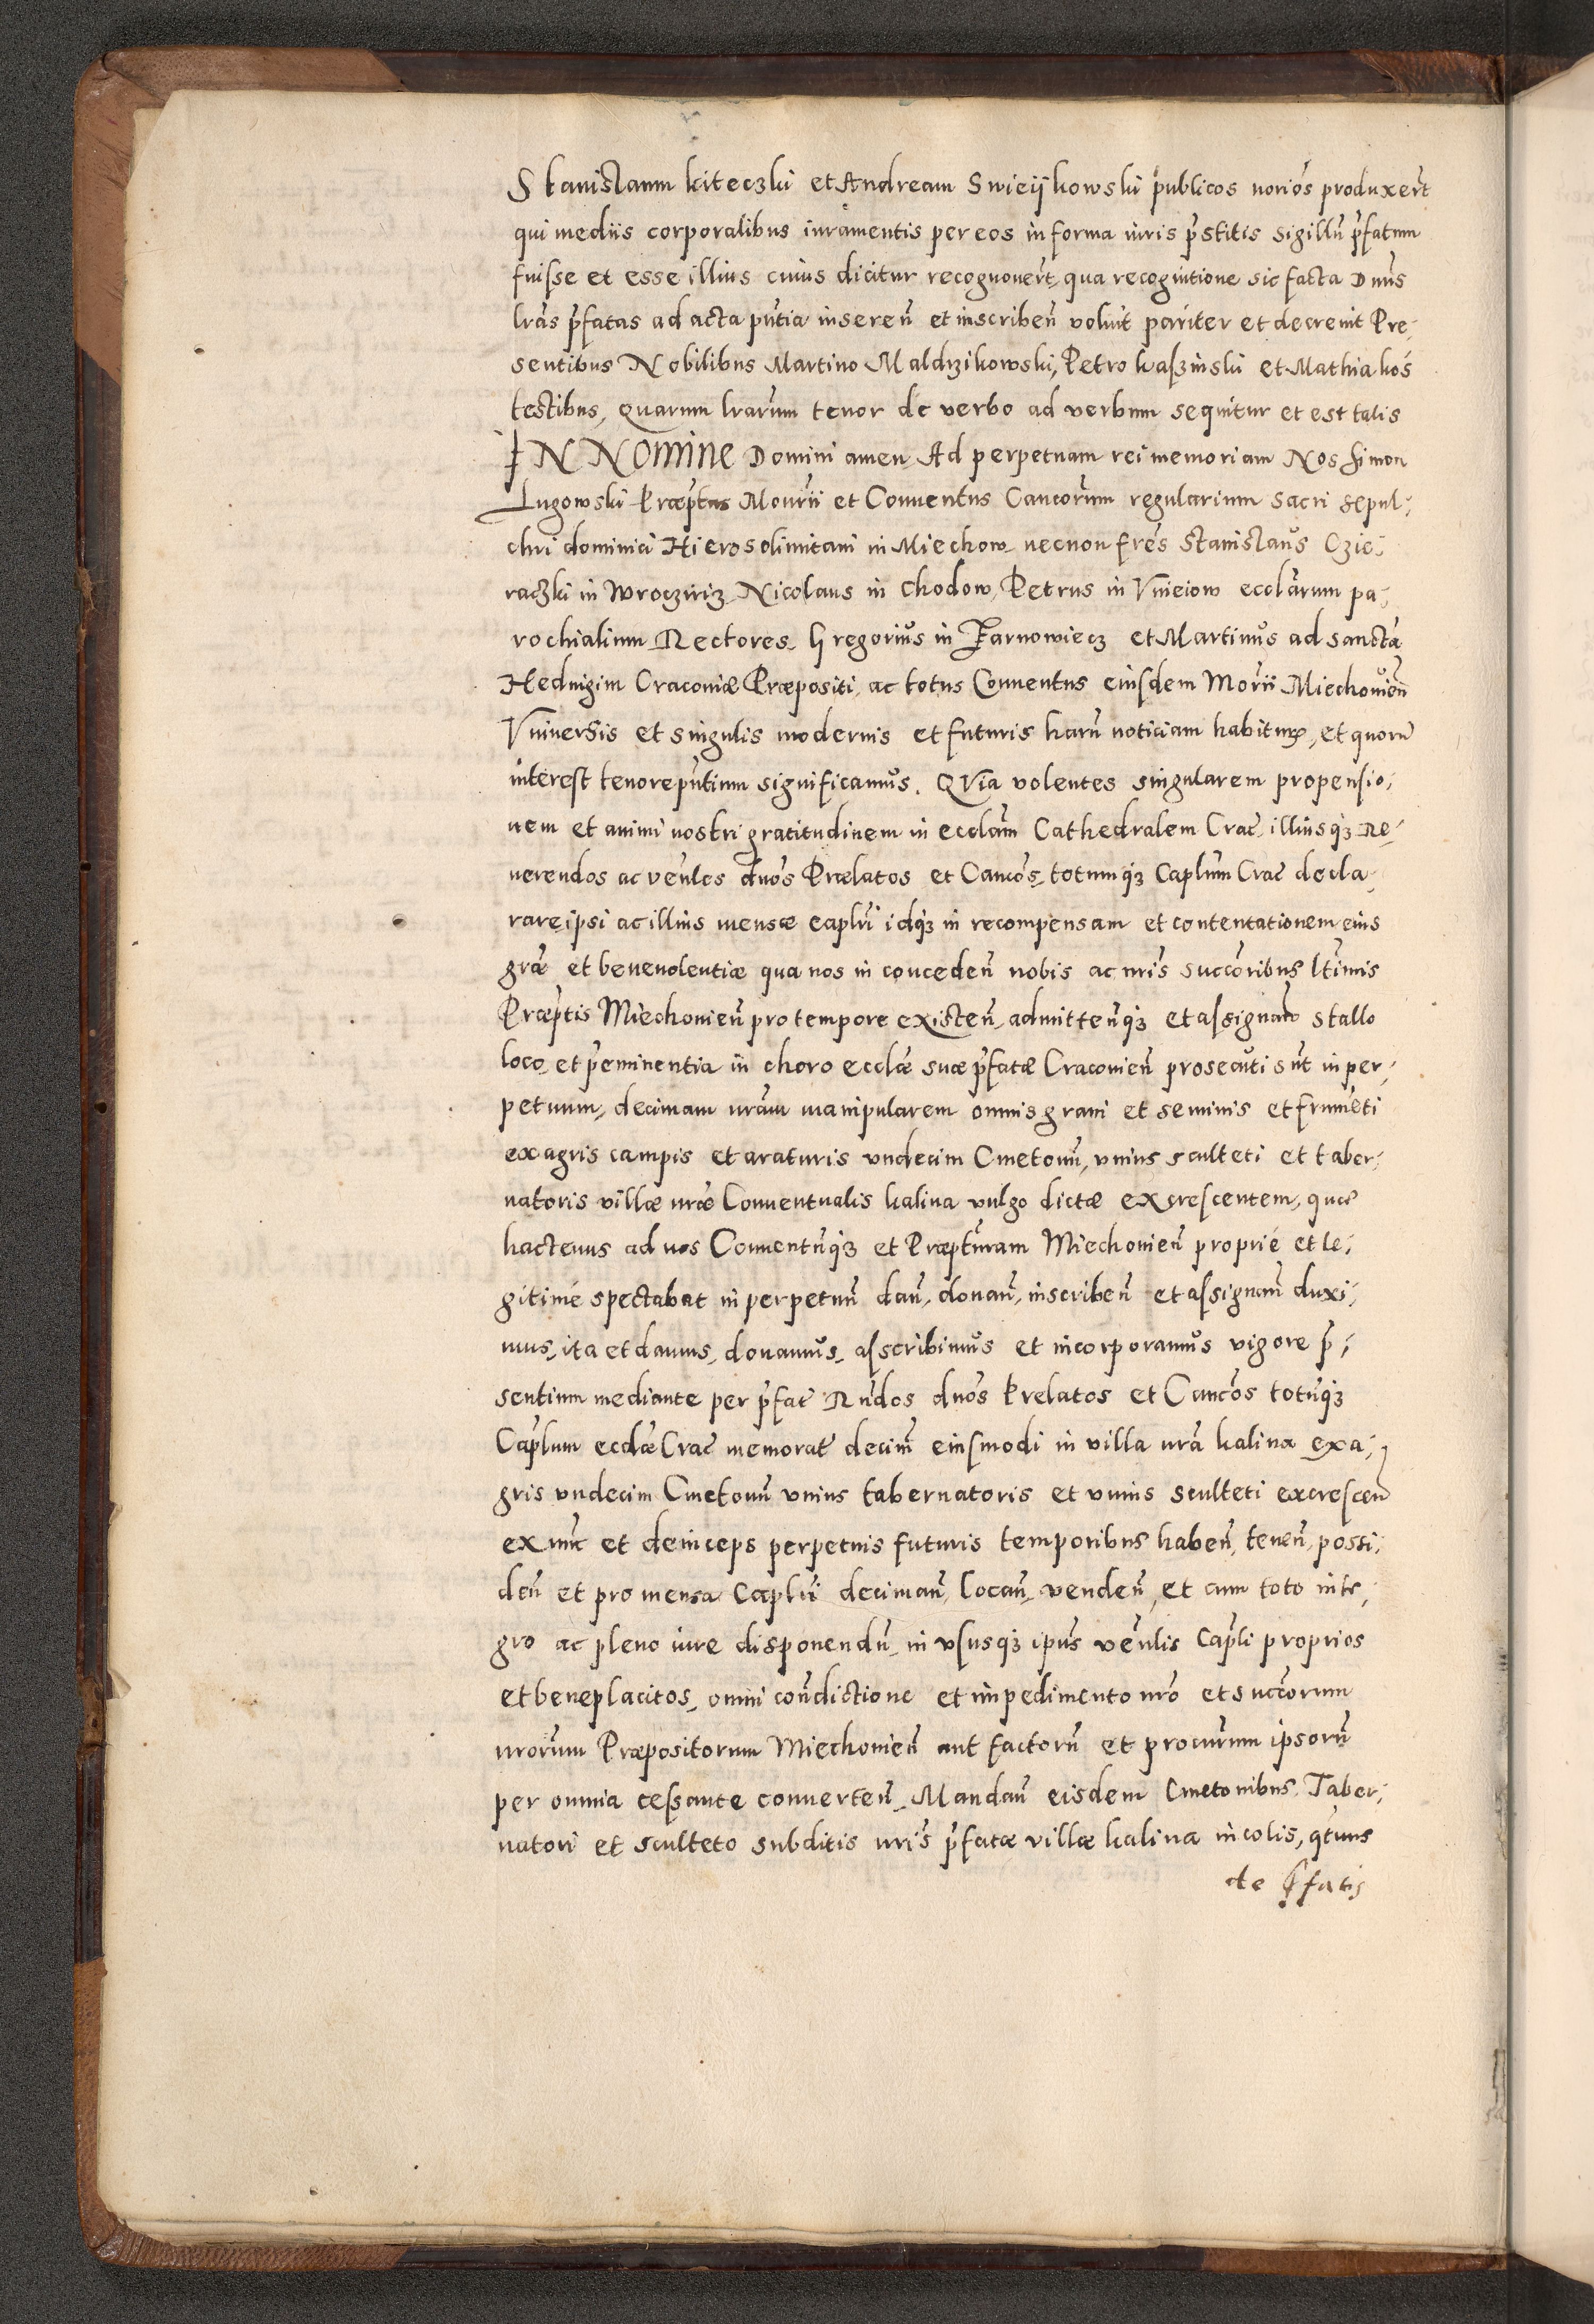 Stanislaum Kiteczki et Andream Swieijkowski publicos norios produxert
qui mediis corporalibus iuramentis per eos in forma iuris pr̃stitis sigillũ pr̃fatum
fuisse et esse illius cuius dicitur recognouert, qua recognitione sic facta Dnus
lras pr̃fatas ad acta pñtia inseren̄ et inscriben̄ voluit pariter et decreuit Pre-
sentibus Nobilibus Martino Maldrzikowski, Petro Kaszinski et Mathia Kos
testibus, Quarum lrarum tenor de verbo ad verbum sequitur et est talis
IN NOMINE Domini amen Ad perpetuam rei memoriam Nos Simon
Lugowski Præptus Monrii et Conuentus Cancorum regularium sacri sepul-
chri dominici Hierosolimitani in Miechow necnon fres Stanislaus Czie-
raczki in Wrocziriz Nicolaus in Chodow, Petrus in Vnieiow ecclarum pa-
rochialium Rectores, Gregorius in Jarnowiecz et Martinus ad sanctã
Heduigim Cracouiæ Præpositi, ac totus Conuentus eiusdem Monrii Miechouien̄
Vniuersis et singulis modernis et futuris harũ noticiam habiturꝭ, et quorũ
interest tenore pñtium significamus. QVia volentes singularem propensio-
nem et animi nostri gratitudinem in ecclam Cathedralem Crac illiusqȝ Re-
uerendos ac veñles dnos Prælatos et Cancos, totumqȝ Caplum Crac decla-
rare, ipsi ac illius mensæ caplri idqȝ in recompensam et contentationem eius
græ et beneuolentiæ qua nos in conceden̄ nobis ac nris succoribus ltimis
Præptis Miechouien̄ pro tempore existen̄, admitten̄qȝ et assignan̄ stallo
loco, et pr̃eminentia in choro ecclæ suæ pr̃fatæ Cracouien̄ prosecuti sũt in per-
petuum, decimam nram manipularem omnis grani et seminis et frumẽti
ex agris campis et araturis vndecim Cmetonũ, vnius sculteti et taber-
natoris villæ nræ Conuentualis Kalina vulgo dictæ excrescentem, quæ
hactenus ad nos Conuentũqȝ et Præpturam Miechouien̄ proprié et le-
gitimé spectabat in perpetuũ dan̄, donan̄, inscriben̄ et assignan̄ duxi-
mus, ita et damus, donamus, asscribimus et incorporamus vigore pr̃-
sentium mediante per pr̃fat Rñdos dnos Prelatos et Cancos totũqȝ
Caplum ecclæ Crac memorat decim̄ eiusmodi in villa nra Kalina ex a-
gris vndecim Cmetonũ vnius tabernatoris et vnius sculteti excrescen̄
ex nũc et deinceps perpetuis futuris temporibus haben̄, tenen̄, possi-
den̄ et pro mensa Caplri deciman̄, locan̄, venden̄, et cum toto inte-
gro ac pleno iure disponendũ, in vsusqȝ ipsius veñlis Capli proprios
et beneplacitos, omni con̄dictione et impedimento nro et succorum
nrorum Præpositorum Miechouien̄ aut factorũ et procurum ipsorũ
per omnia cessante conuerten̄, Mandan̄ eisdem Cmetonibus, Taber-
natori et sculteto subditis nris pr̃fatæ villæ Kalina incolis, qtus
de pr̃fatis